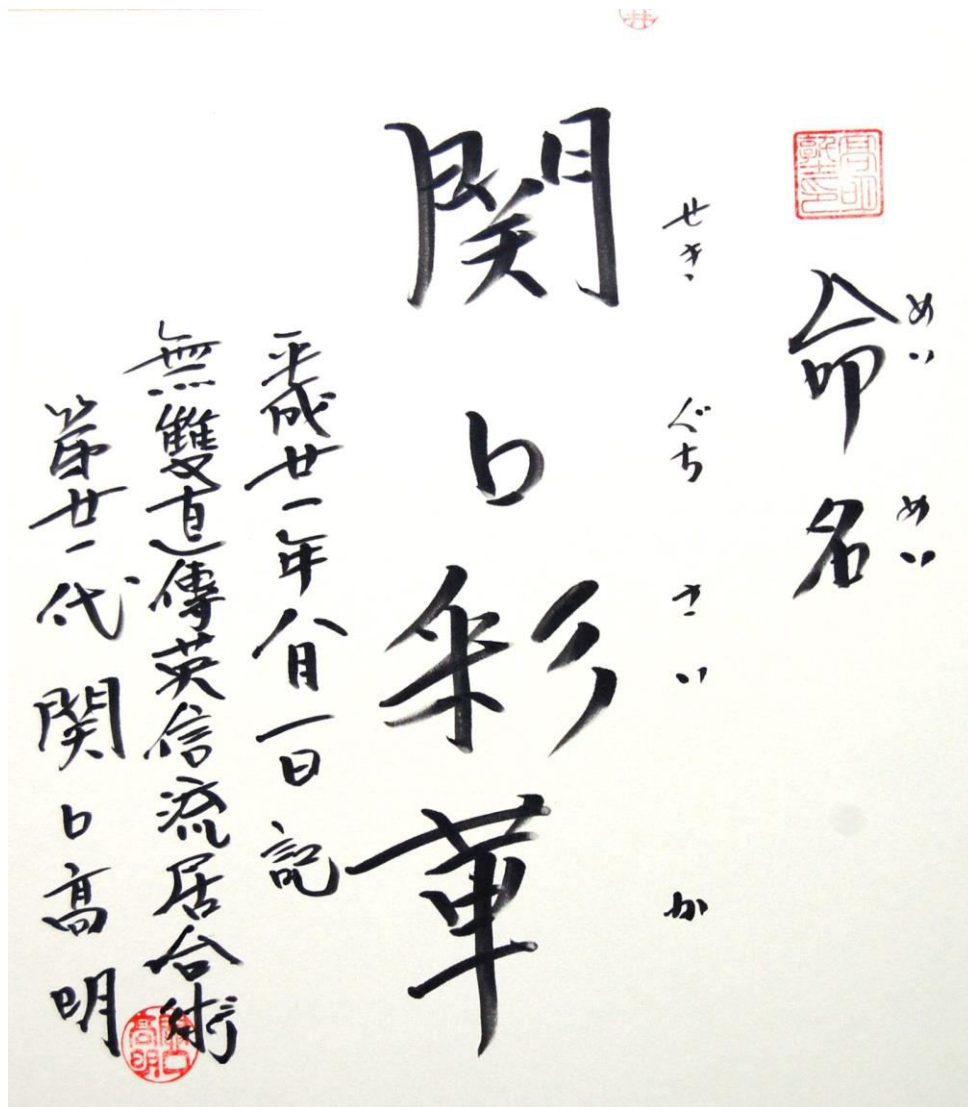 命名
めいめい
関口彩華
せきぐちさいか
平成廿一年八月一日記
無雙直傳英信流居合術
第廿一代 関口髙明